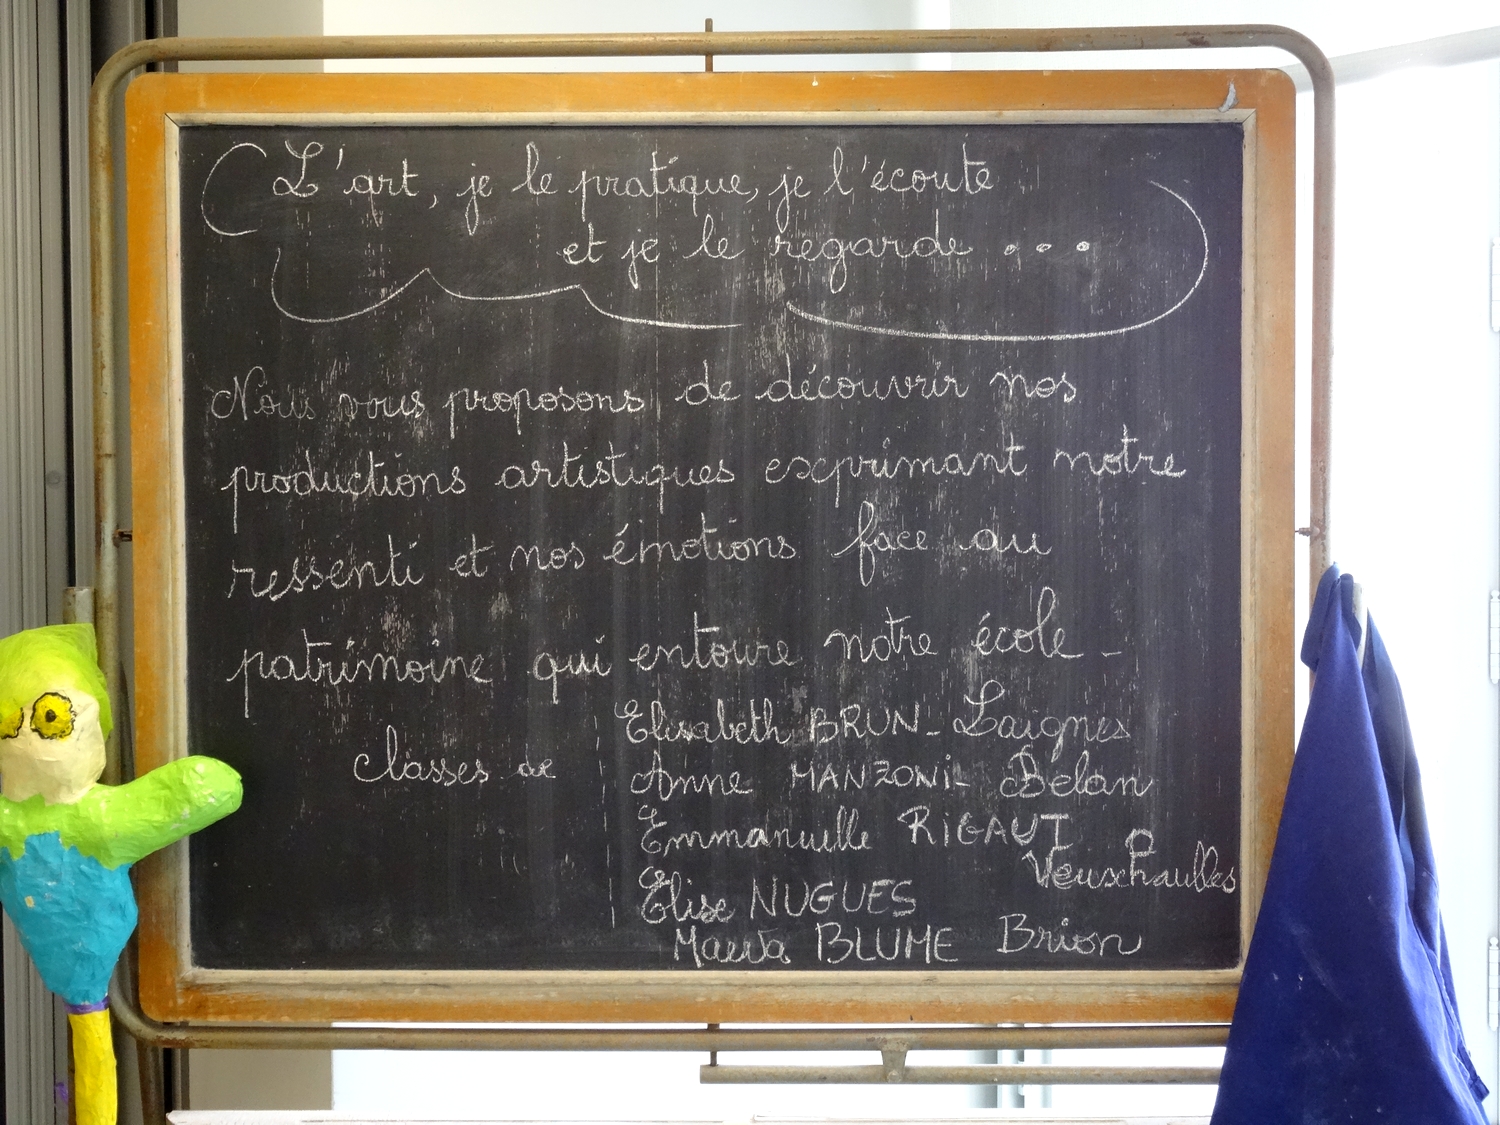 L'art, je le pratique, je l'écoute
et je le regarde ...
Nous vous proposons de découvrir nos
productions artistiques exprimant notre
ressenti et nos émotions face au
patrimoine qui entoure notre école -
classes de
Elisabeth BRUN - Laignes
Anne MANZONI - Belan
Emmanuelle RIGAUT
Veuxhaulles
Elise NUGUES
BLUME Brion